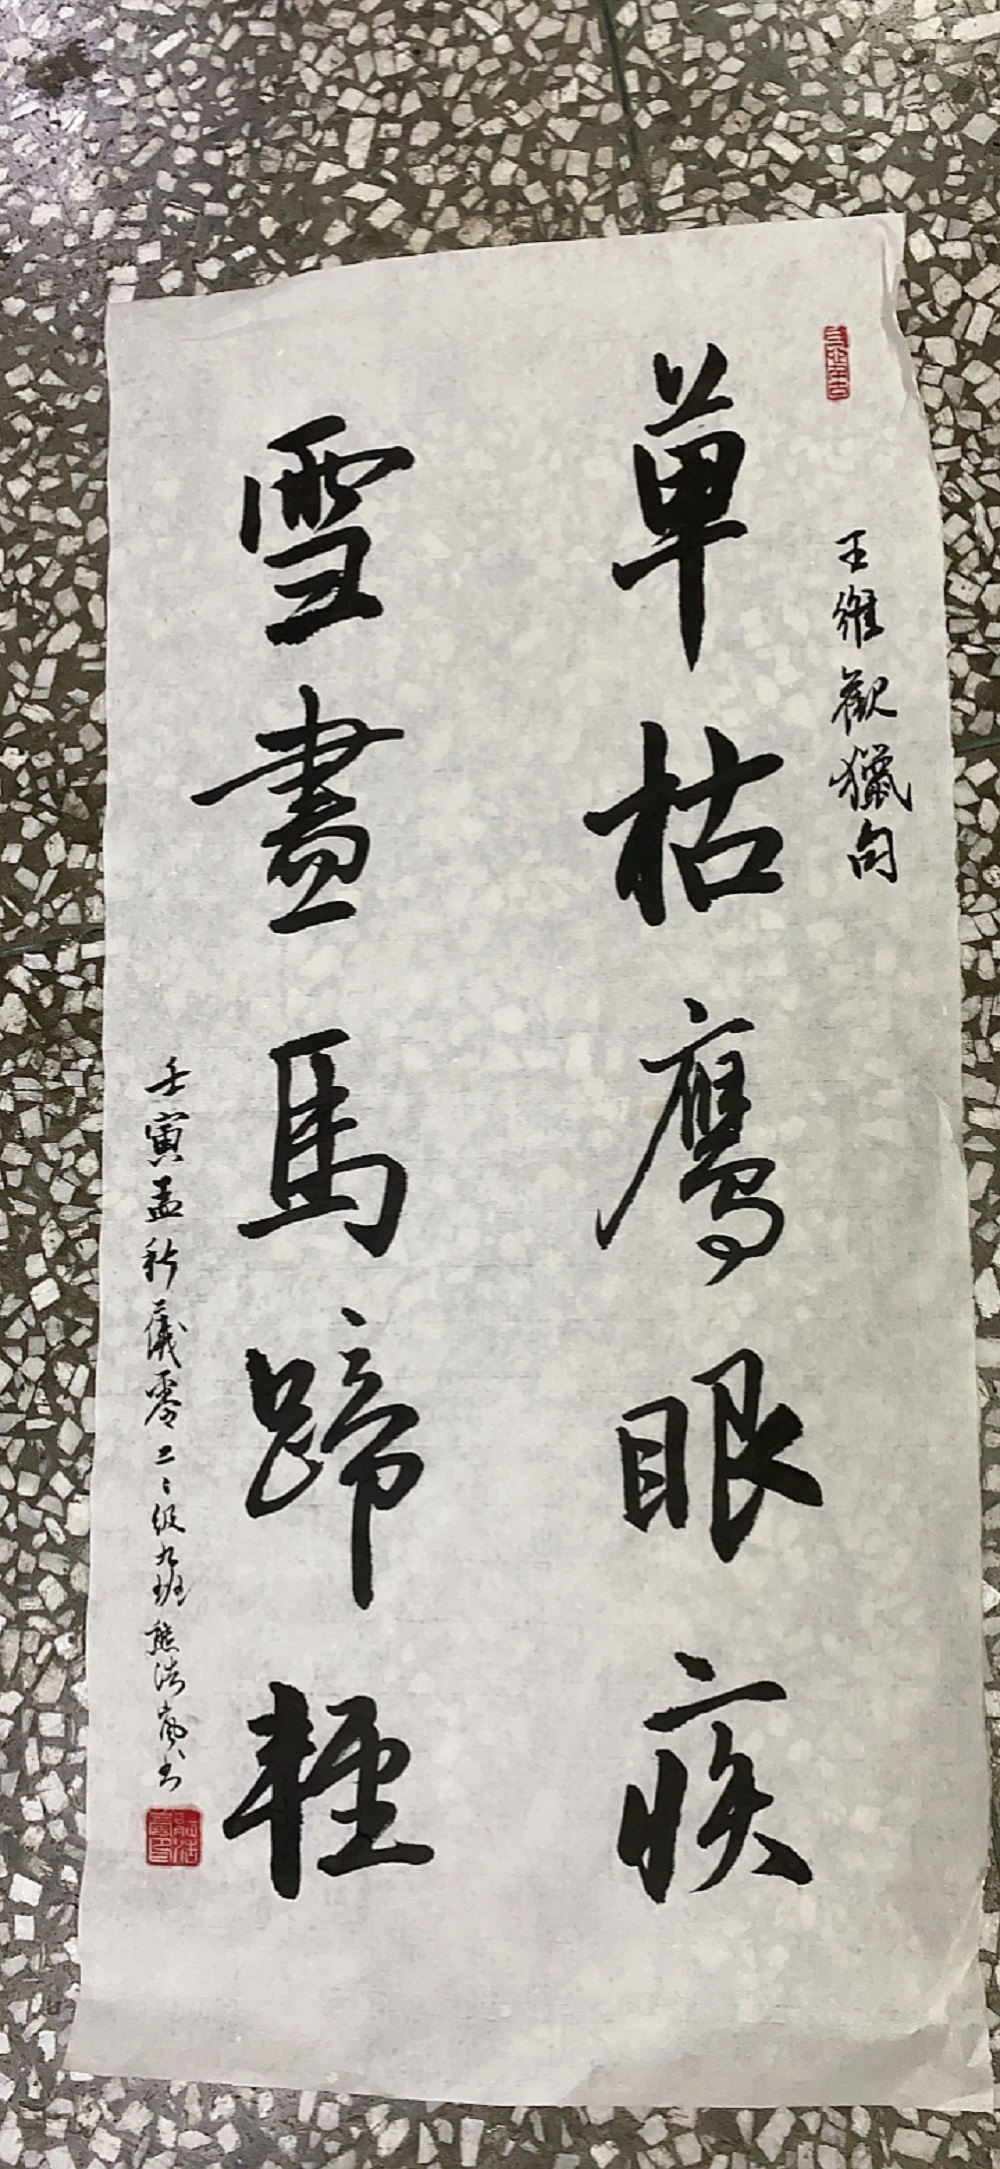 王維觀獵句
草枯鷹眼疾
雪盡馬蹄輕
壬寅孟秋儀零二二級九班熊浩嵐书